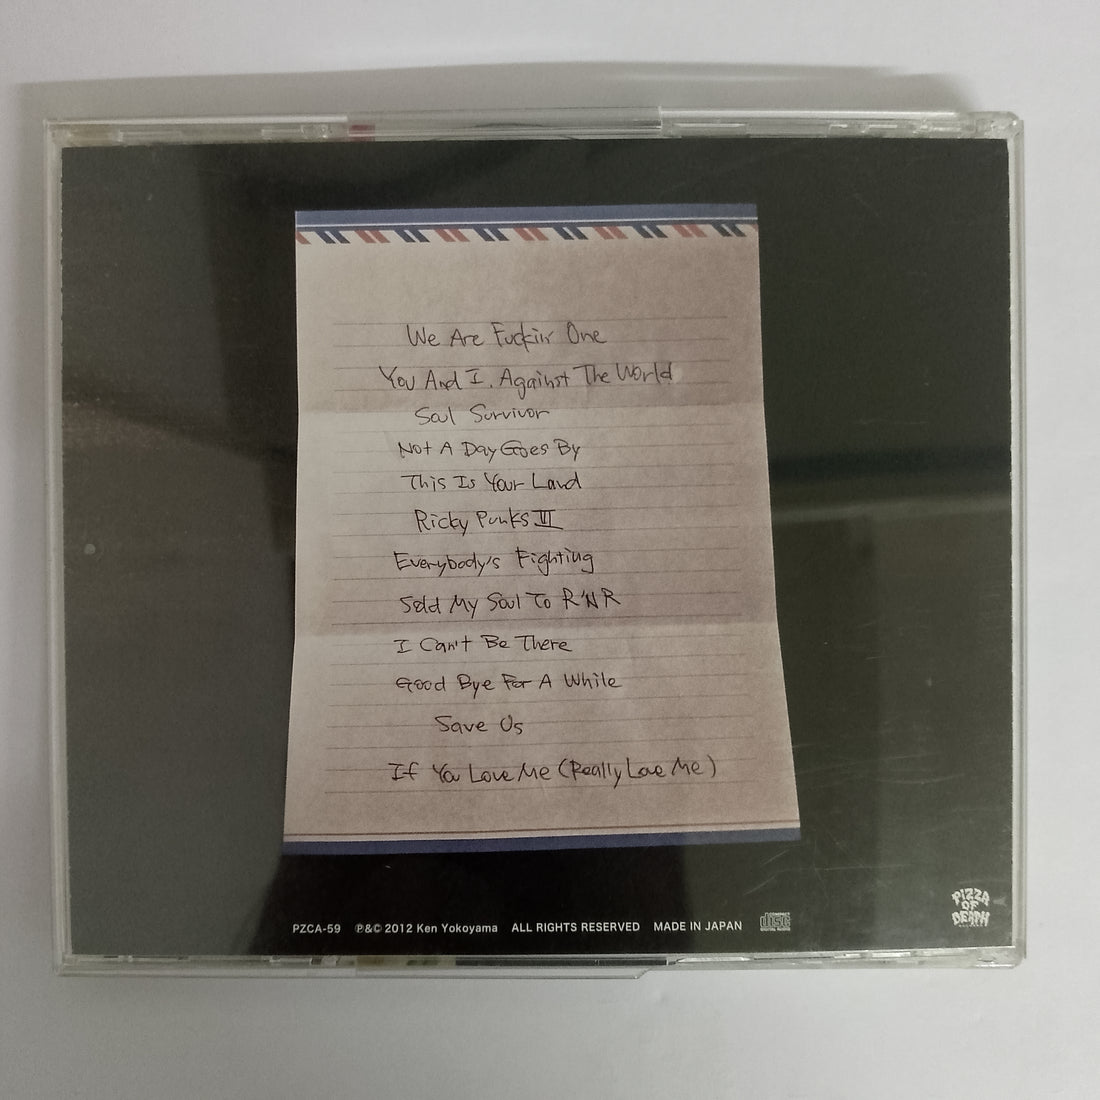 We Are Fuckin' One
You And I, Against The World
Soul Survivor
Not A Day Goes By
This Is Your Land
Ricky Punks III
Everybody's Fighting
Sold My Soul To R'N'R
I Can't Be There
Good Bye For A While
Save Us
If You Love Me (Really Love Me)
PZCA-59 ℗&© 2012 Ken Yokoyama ALL RIGHTS RESERVED MADE IN JAPAN
COMPACT
disc
DIGITAL AUDIO
PIZZA
OF
DEATH